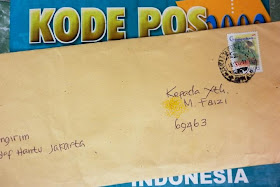 KODE POS
Kepada Yth.
M. Faizi
69463
Hantu Jakarta
INDONESIA